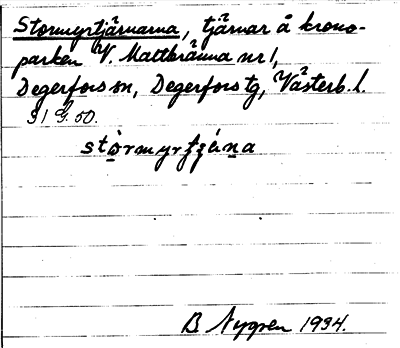 Stormyrtjärnarna, tjärnar å krono-
parken V. Mattbränna nr 1,
Degerfors sn, Degerfors tg, Västerb. l.
S1 G. 50.
B Nygren 1934.